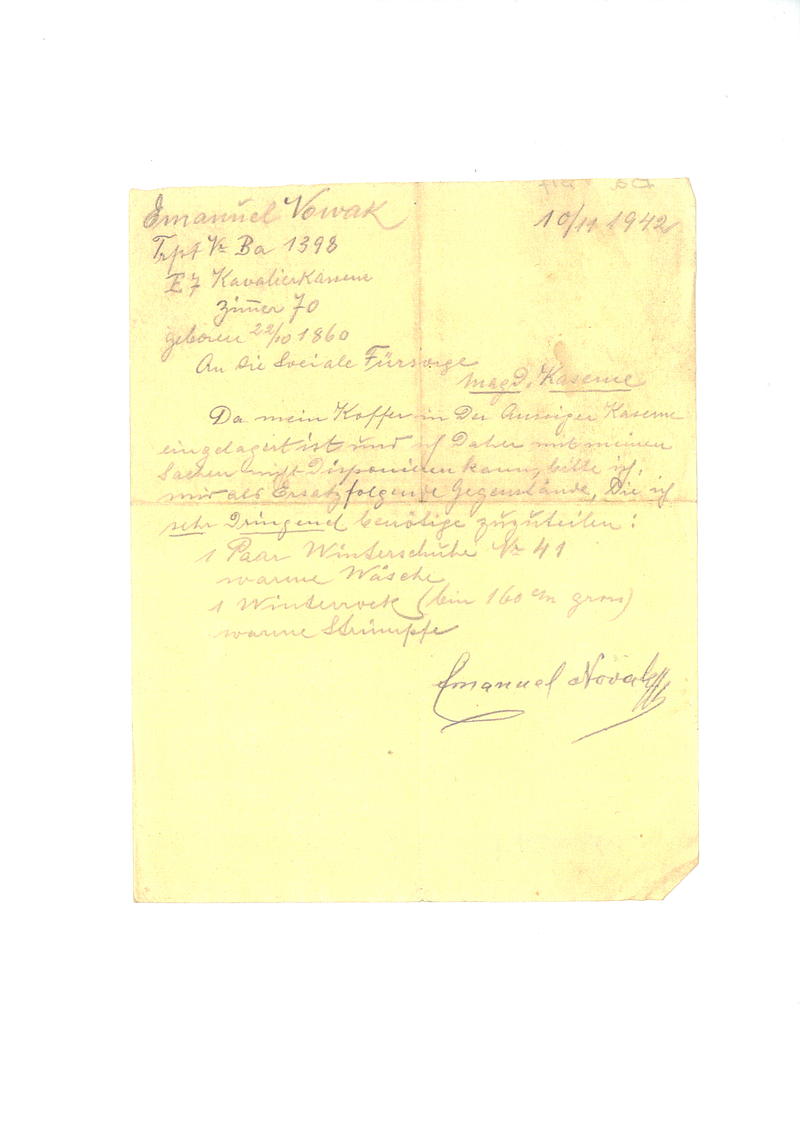 Emanuel Nowak
10/11 1942
Trpt Nr Ba 1398
E7 Kavalierkaserne
Zim̅er 70
geboren 22/10 1860
An die Sociale Fürsorge
Magd. Kaserne
Da mein Koffer in der Aussiger Kaserne
eingelagert ist und ich daher mit meinen
Sachen nicht disponieren kann, bitte ich,
mir als Ersatz folgende Gegenstände, die ich
sehr dringend benötige zuzuteilen:
1 Paar Winterschuhe Nr 41
warme Wäsche
1 Winterrock (bin 160 cm gross)
warme Strümpfe
Emanuel Novak